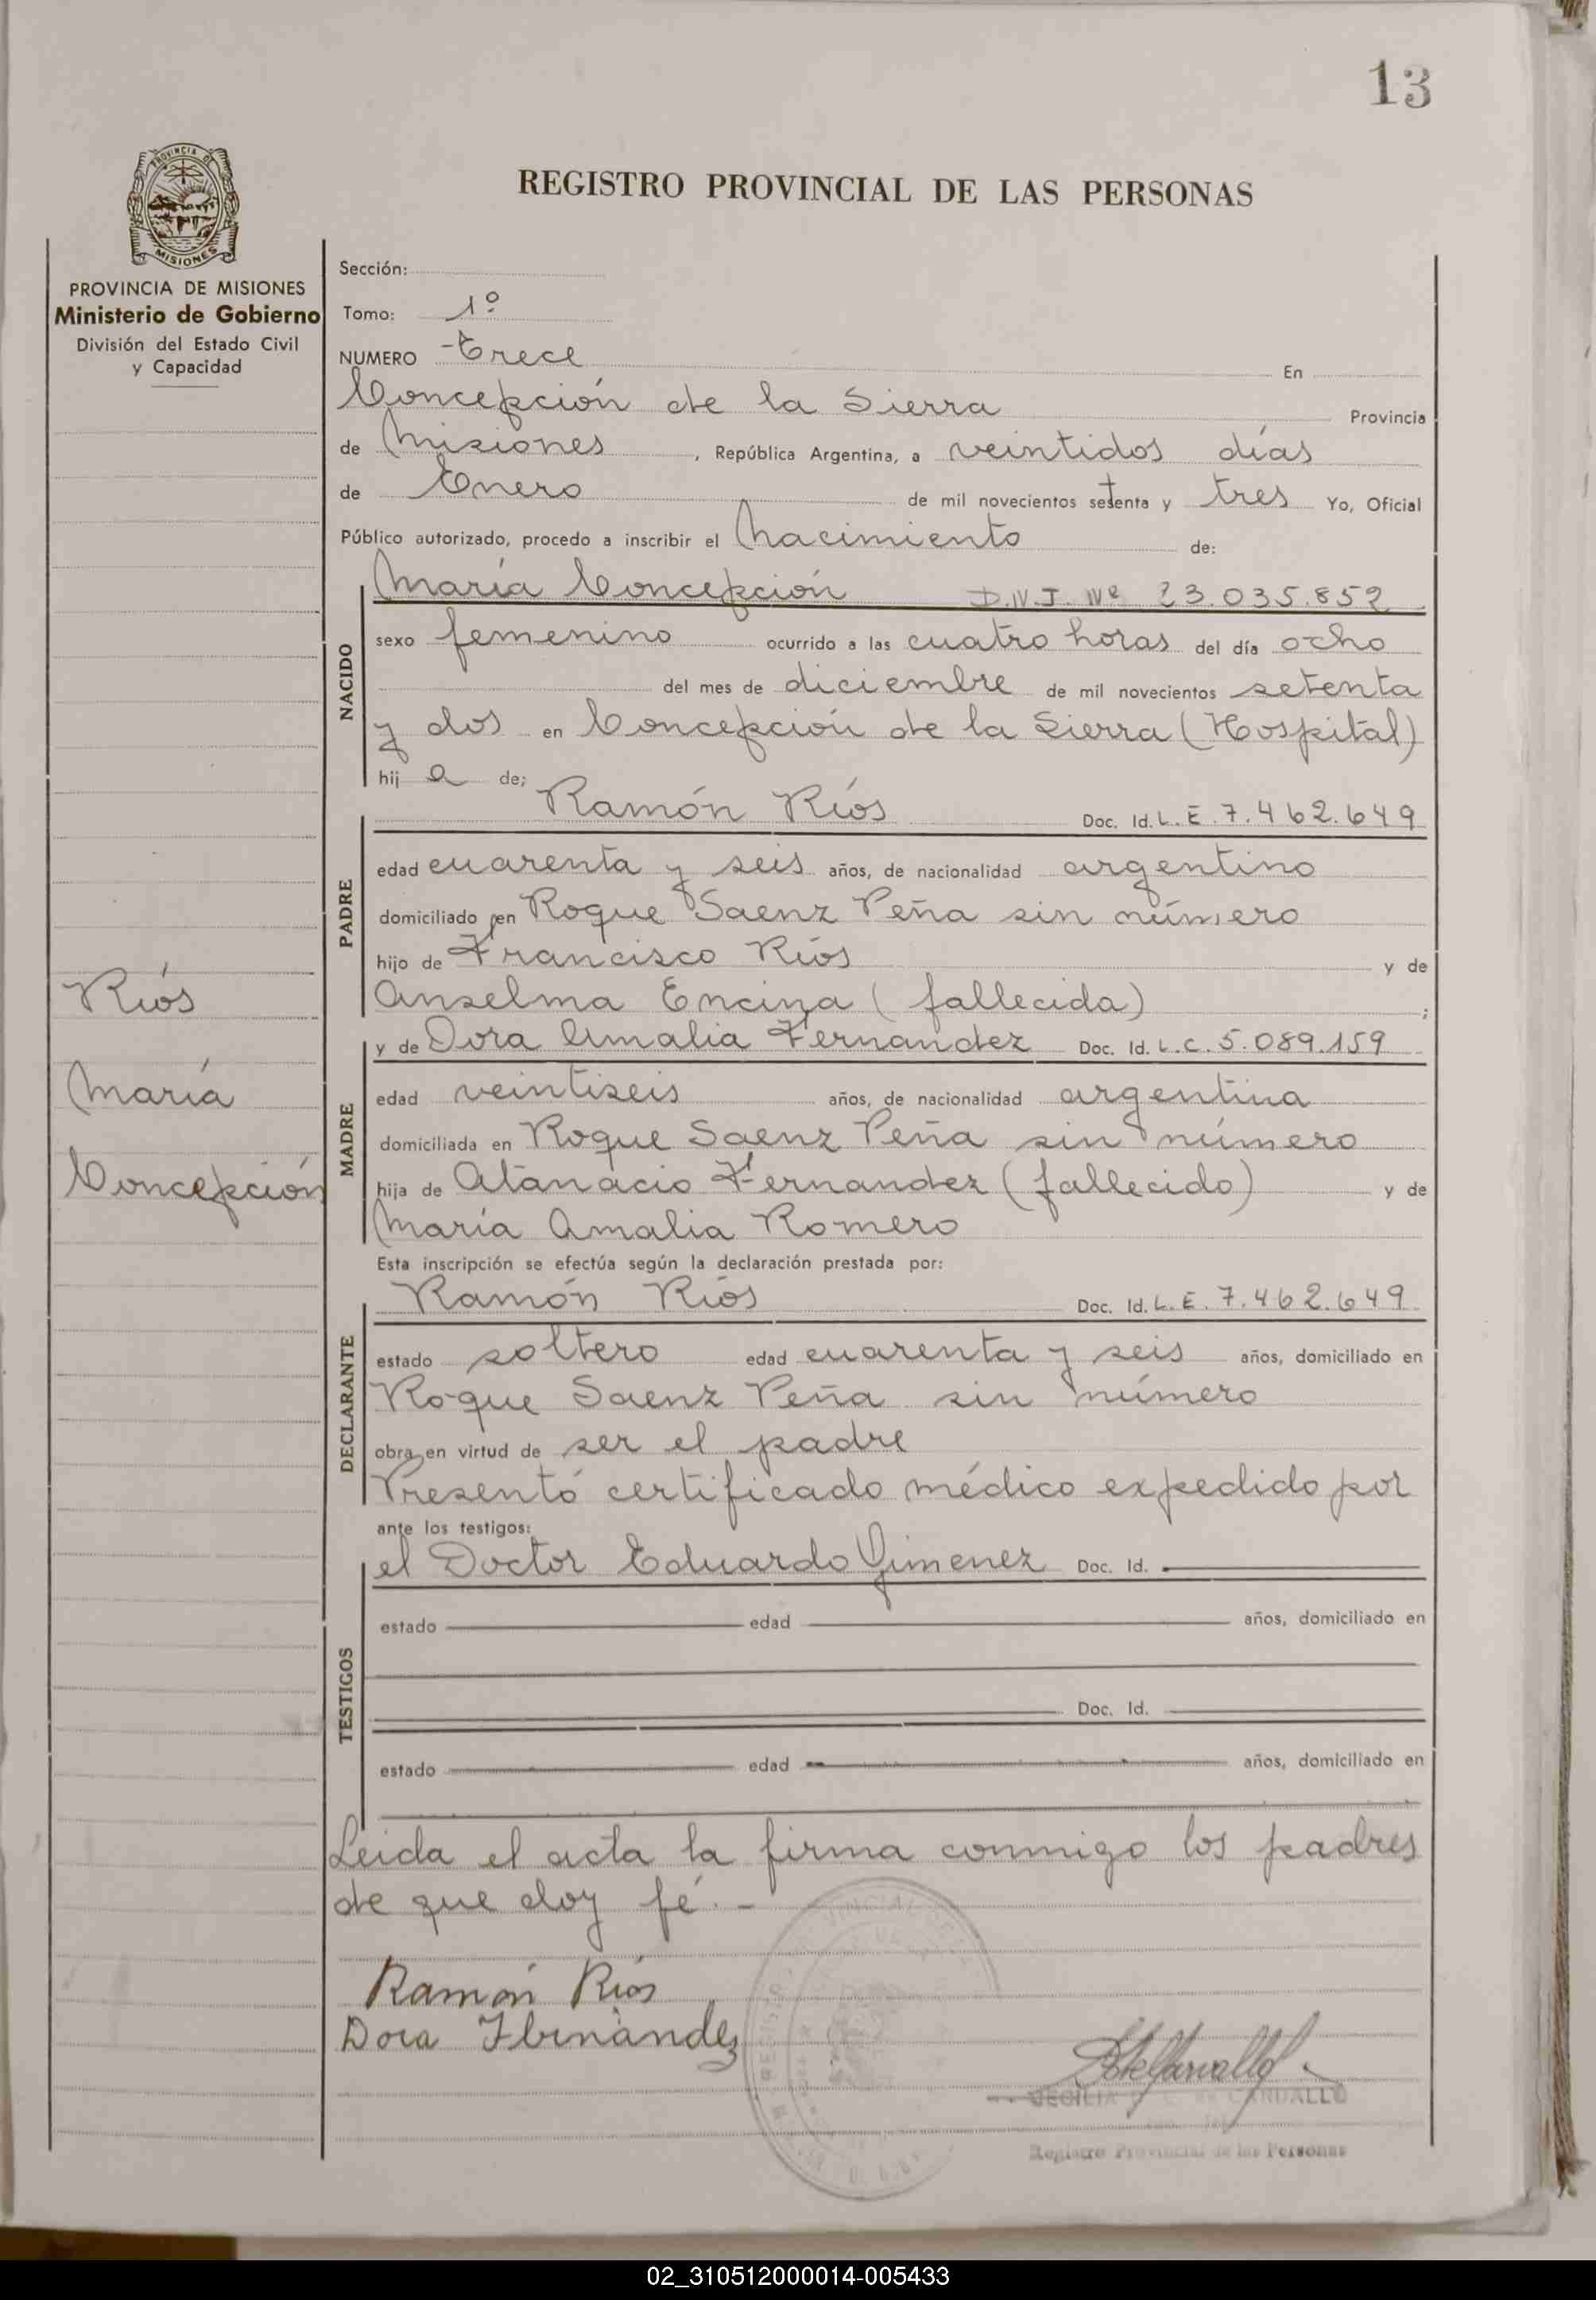 13
REGISTRO PROVINCIAL DE LAS PERSONAS
PROVINCIA DE MISIONES
PROVINCIA DE MISIONES
Ministerio de Gobierno
División del Estado Civil
y Capacidad
Ríos
María
Concepción
Sección:
Tomo: 1º
NUMERO -trece En
Concepción de la Sierra Provincia
de Misiones, República Argentina, a veintidos días
de Enero de mil novecientos setenta y tres Yo, Oficial
Público autorizado, procedo a inscribir el Nacimiento de:
NACIDO
María Concepción D.N.I. Nº 23.035.852
sexo femenino ocurrido a las cuatro horas del día ocho
del mes de diciembre de mil novecientos setenta
y dos en Concepción de la Sierra (Hospital)
hij a de;
PADRE
Ramón Ríos Doc. Id. L.E. 7.462.649
edad cuarenta y seis años, de nacionalidad argentino
domiciliado en Roque Saenz Peña sin número
hijo de Francisco Ríos y de
Anselma Encina (fallecida) ;
MADRE
y de Dora Amalia Fernandez Doc. Id. L.C. 5.089.159
edad veintiseis años, de nacionalidad argentina
domiciliada en Roque Saenz Peña sin número
hija de Atanacio Fernandez (fallecido) y de
María Amalia Romero
Esta inscripción se efectúa según la declaración prestada por:
DECLARANTE
Ramón Ríos Doc. Id. L.E. 7.462.649
estado soltero edad cuarenta y seis años, domiciliado en
Roque Saenz Peña sin número
obra en virtud de ser el padre
Presentó certificado médico expedido por
ante los testigos:
TESTIGOS
el Doctor Eduardo Gimenez Doc. Id.
estado edad años, domiciliado en
Doc. Id.
estado edad años, domiciliado en
Leida el acta la firma conmigo los padres
de que doy fé.-
Ramón Ríos
Dora Fernández
CECILIA
Registro Provincial de las Personas
02_310512000014-005433